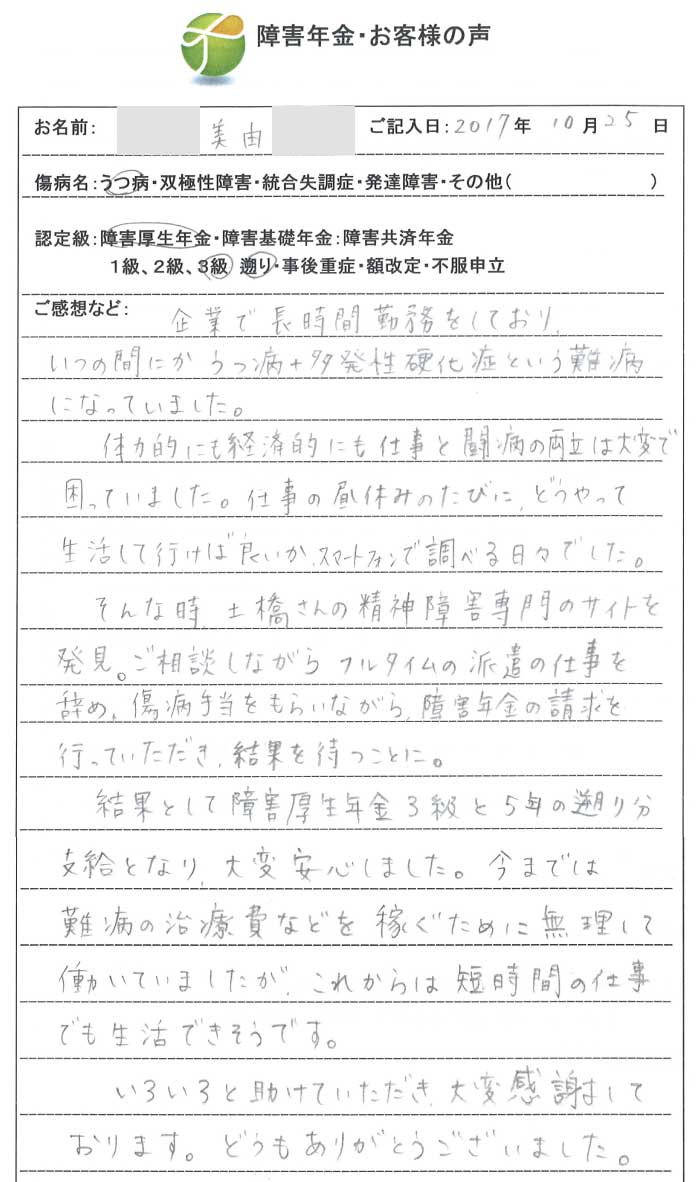 障害年金・お客様の声
お名前： 美由 ご記入日：2017年 10月25日
傷病名：うつ病・双極性障害・統合失調症・発達障害・その他（ ）
認定級：障害厚生年金・障害基礎年金：障害共済年金
1級、2級、3級 遡り・事後重症・額改定・不服申立
ご感想など： 企業で長時間勤務をしており、
いつの間にかうつ病+多発性硬化症という難病
になっていました。
体力的にも経済的にも仕事と闘病の両立は大変で
困っていました。仕事の昼休みのたびに、どうやって
生活して行けば良いか、スマートフォンで調べる日々でした。
そんな時 土橋さんの精神障害専門のサイトを
発見。ご相談しながらフルタイムの派遣の仕事を
辞め、傷病手当をもらいながら、障害年金の請求を
行っていただき、結果を待つことに。
結果として障害厚生年金3級と5年の遡り分
支給となり、大変安心しました。今までは
難病の治療費などを稼ぐために無理して
働いていましたが、これからは短時間の仕事
でも生活できそうです。
いろいろと助けていただき、大変感謝まして
おります。どうもありがとうございました。